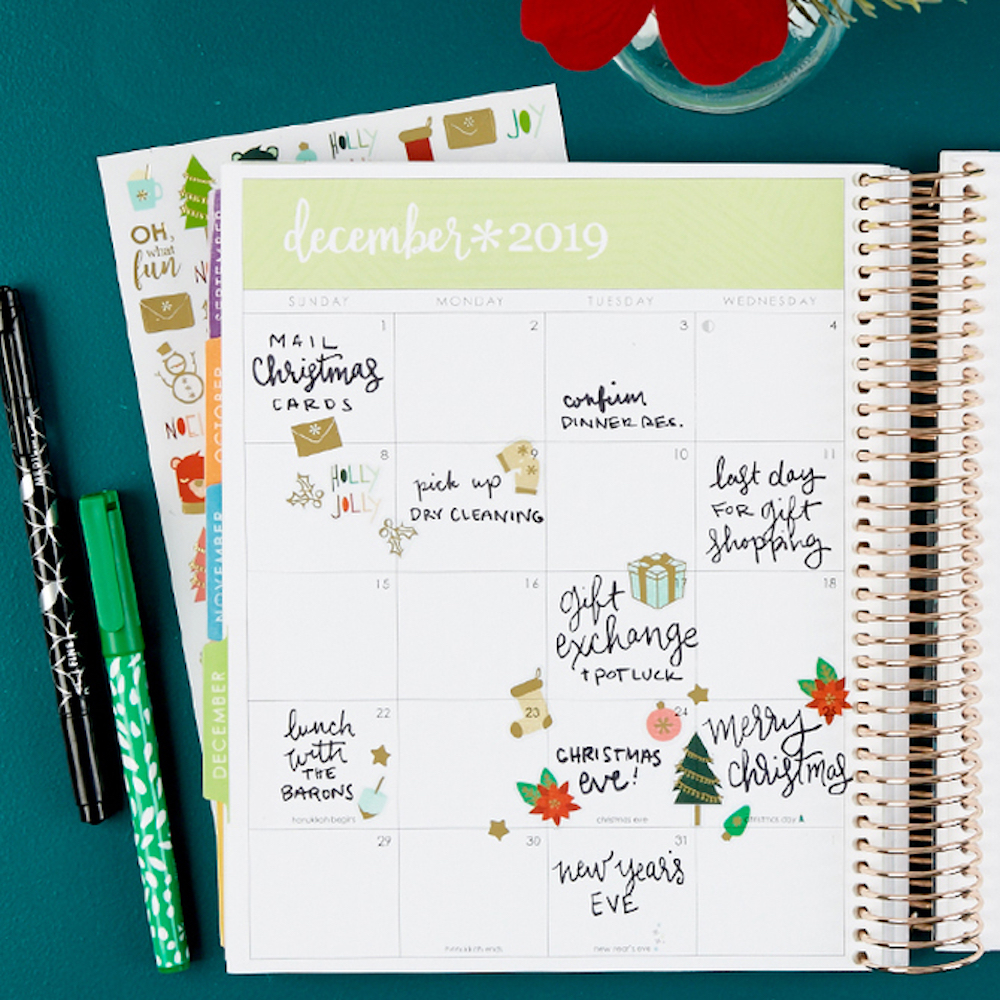 HOLLY
JOY
OH,
what
fun
NOEL
SEPTEMBER
OCTOBER
NOVEMBER
DECEMBER
december*2019
SUNDAY MONDAY TUESDAY WEDNESDAY
1 2 3 4
MAIL
Christmas
CARDS
confirm
DINNER RES.
8 9 10 11
HOLLY
JOLLY
pick up
DRY CLEANING
last day
FOR gift
shopping
15 16 17 18
gift
exchange
+ POTLUCK
22 23 24 25
lunch
with
THE
BARONS
hanukkah begins
CHRISTMAS
eve!
christmas eve
merry
christmas
christmas day
29 30 31
hanukkah ends
new year's
EVE
new year's eve
FINE